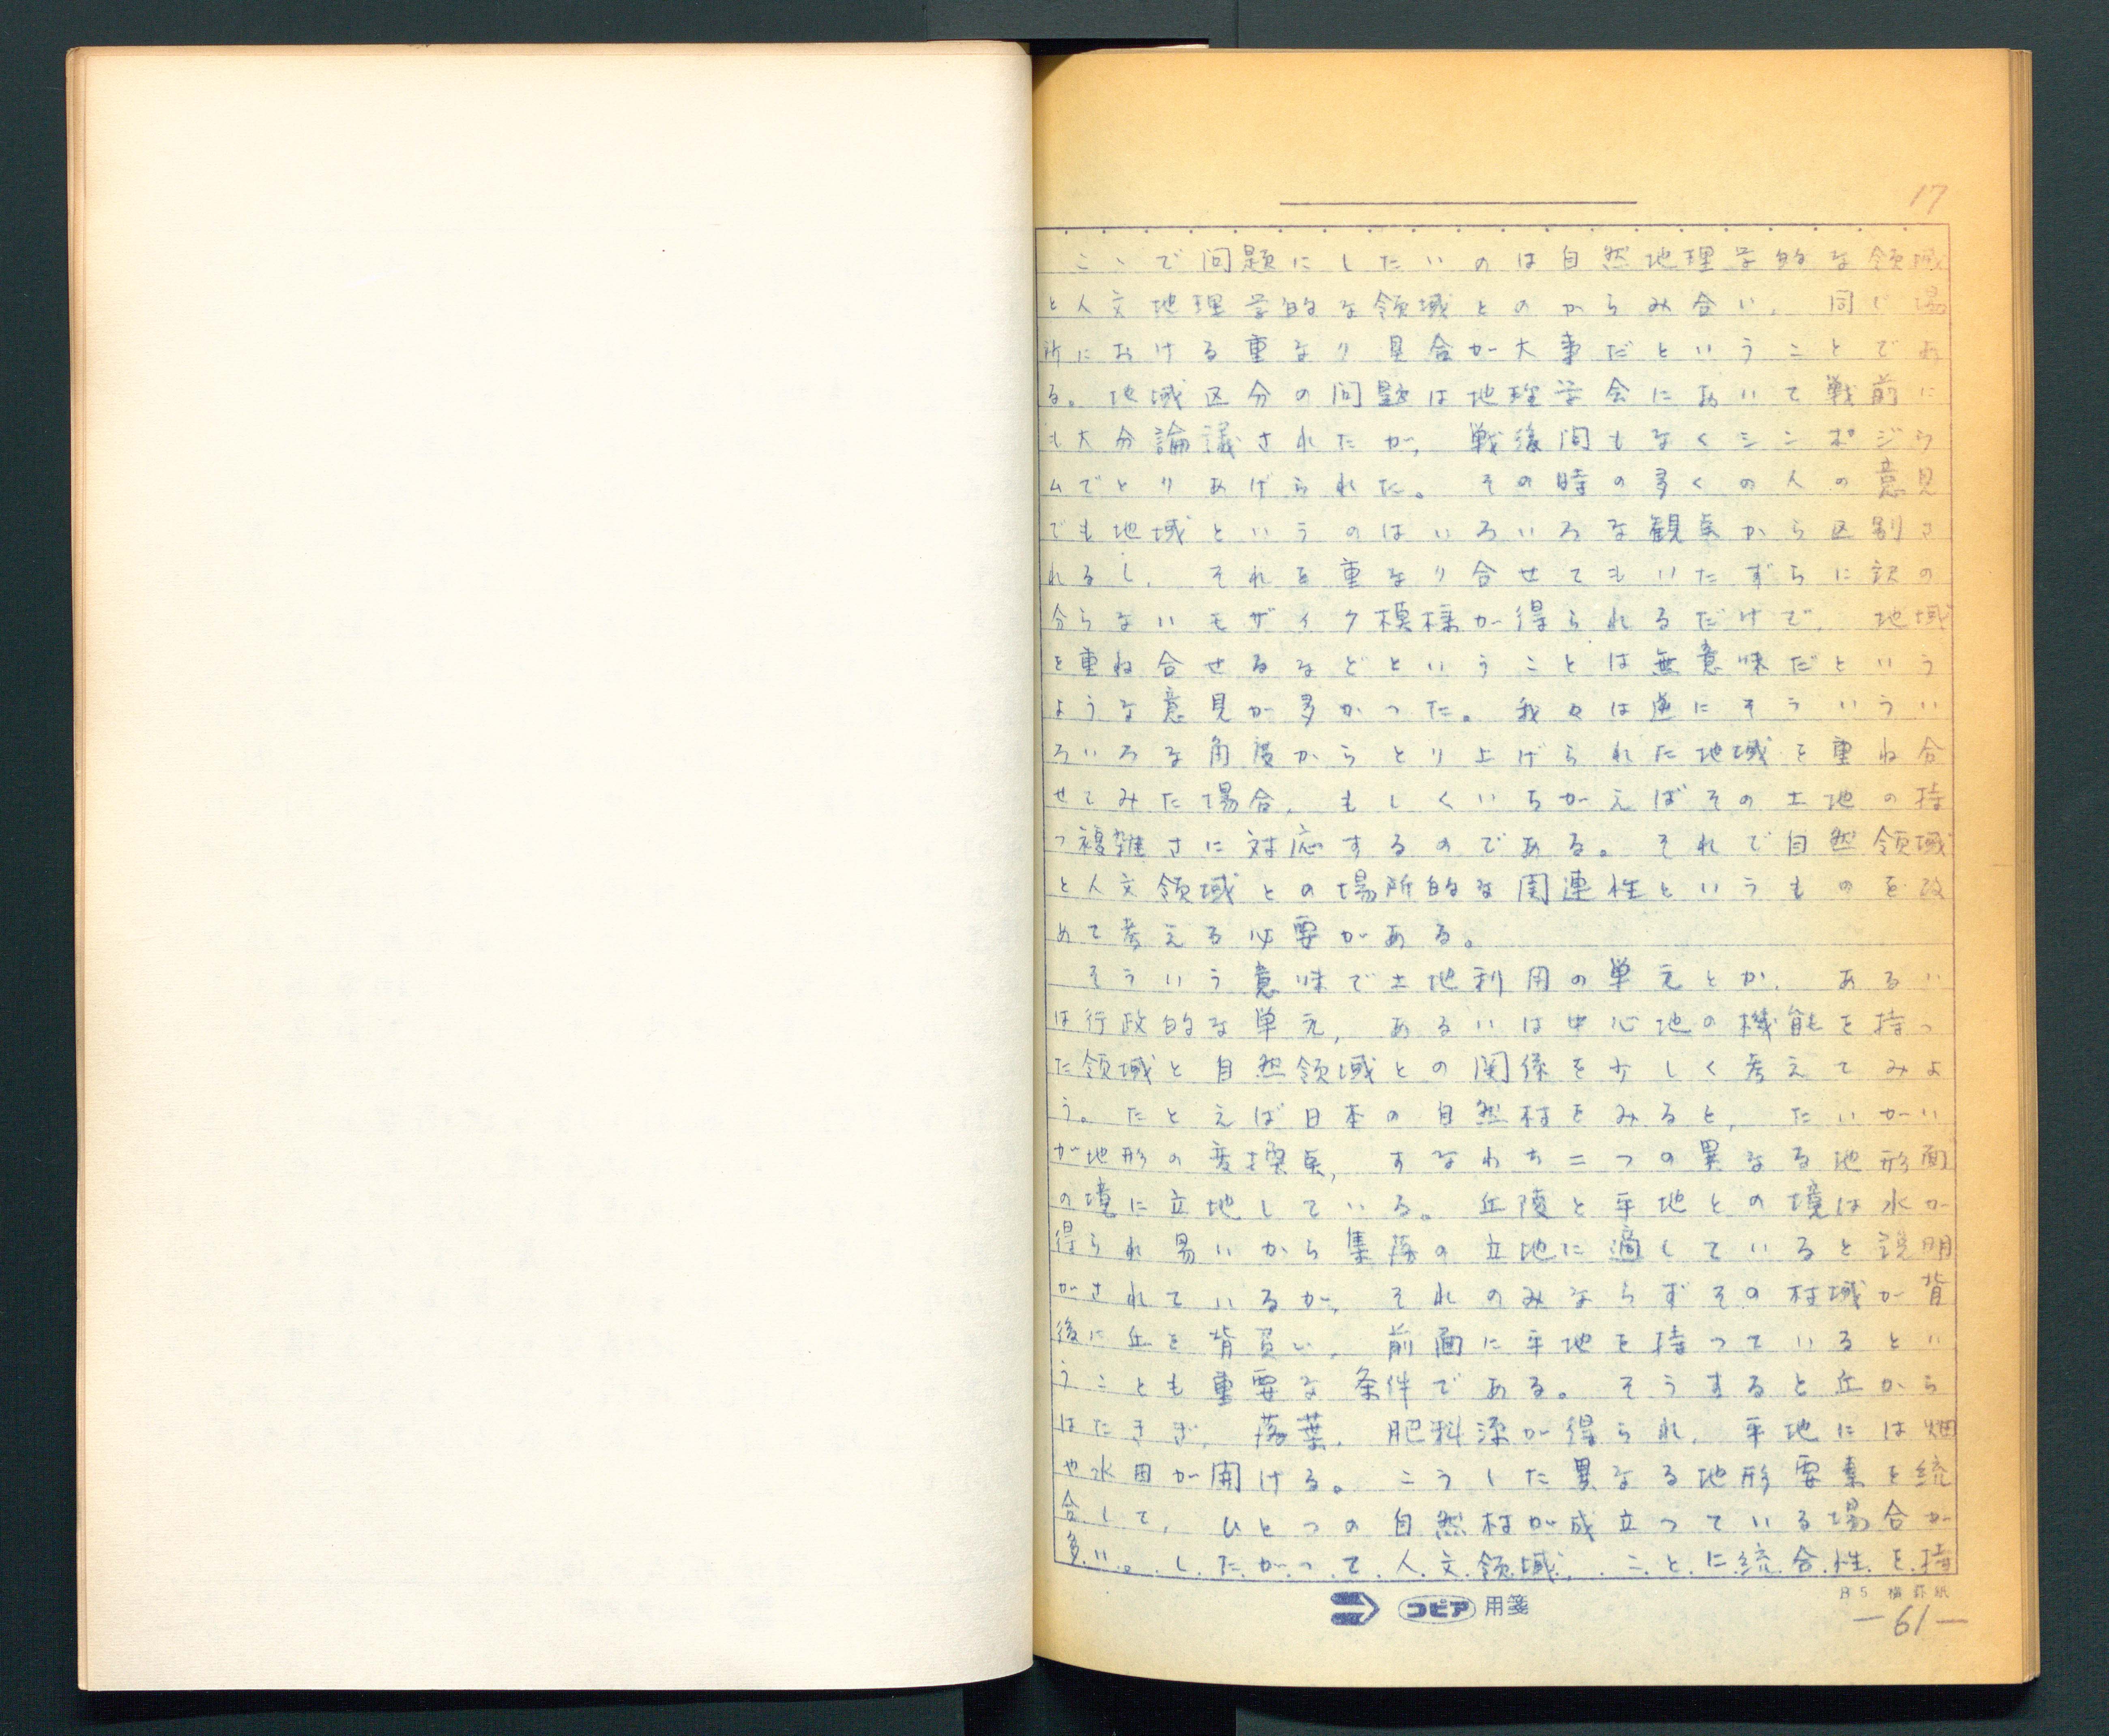 17
こゝで問題にしたいのは自然地理学的な領域
と人文地理学的な領域とのからみ合い、同じ場
所における重なり具合が大事だということであ
る。地域区分の問題は地理学会において戦前に
も大分論議されたが、戦後間もなくシンポジウ
ムでとりあげられた。その時の多くの人の意見
でも地域というのはいろいろな観点から区別さ
れるし、それを重なり合せてもいたずらに訳の
分らないモザイク模様が得られるだけで、地域
を重ね合せるなどということは無意味だという
ような意見が多かった。我々は逆にそういうい
ろいろな角度からとり上げられた地域を重ね合
せてみた場合、もしくいちがえばその土地の持
つ複雑さに対応するのである。それで自然領域
と人文領域との場所的な関連性というものを改
めて考える必要がある。
そういう意味で土地利用の単元とか、あるい
は行政的な単元、あるいは中心地の機能を持っ
た領域と自然領域との関係を少しく考えてみよ
う。たとえば日本の自然村をみると、たいがい
が地形の変換点、すなわち二つの異なる地形面
の境に立地している。丘陵と平地との境は水が
得られ易いから集落の立地に適していると説明
がされているが、それのみならずその村域が背
後に丘を背負い、前面に平地を持っているとい
うことも重要な条件である。そうすると丘から
はたきぎ、落葉、肥料源が得られ、平地には畑
や水田が開ける。こうした異なる地形要素を統
合して、ひとつの自然村が成立っている場合が
多い。したがって人文領域、ことに統合性を持
コピア 用箋
B5 横罫紙
—61—